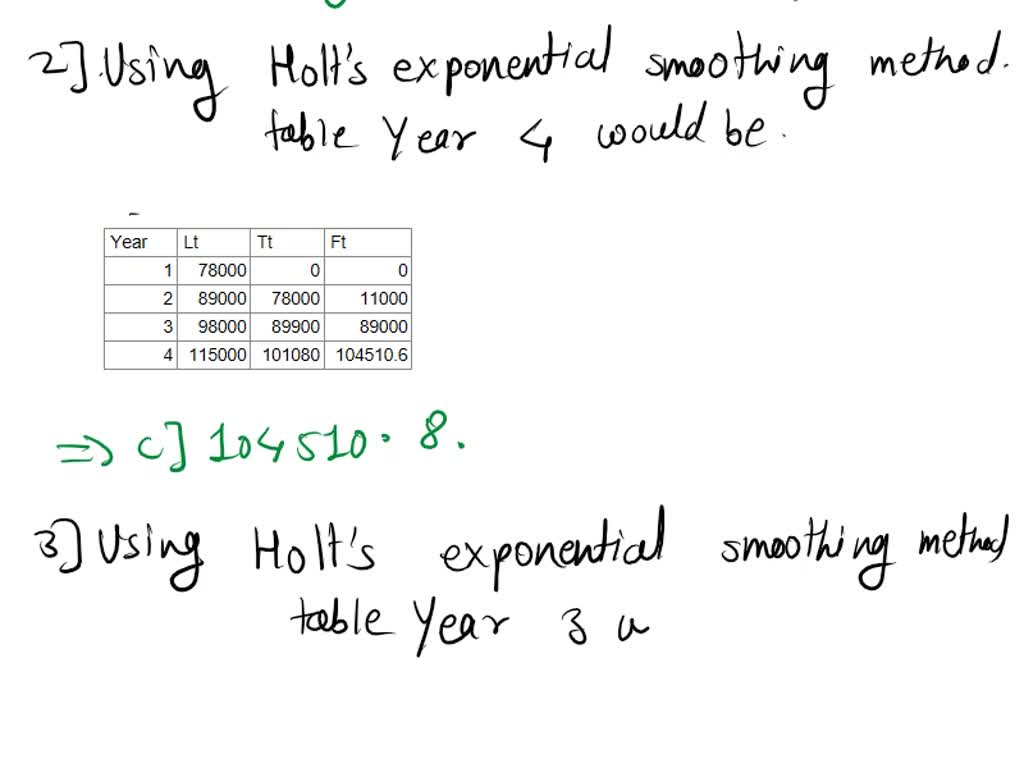 2] Using Holt's exponential smoothing method.
table Year 4 would be.
Year Lt Tt Ft
1 78000 0 0
2 89000 78000 11000
3 98000 89900 89000
4 115000 101080 104510.6
=> c] 104510.8.
3] Using Holt's exponential smoothing method
table Year 3 w